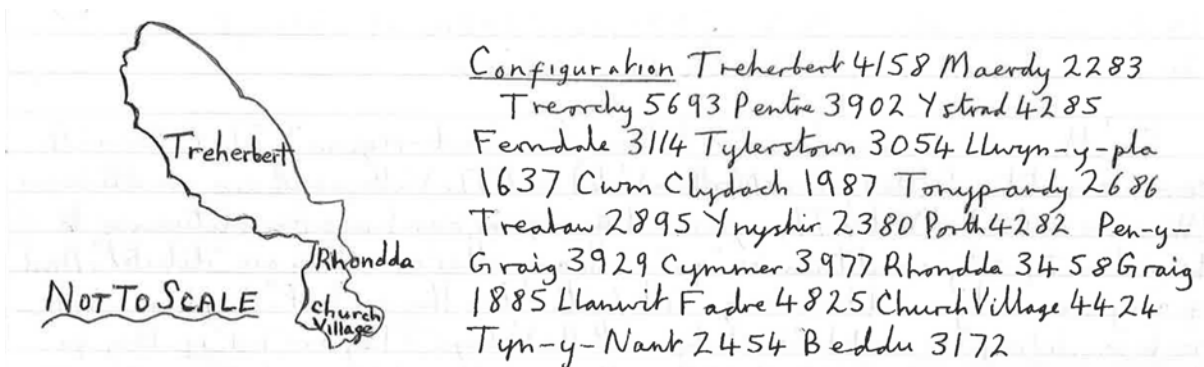 Treherbert
Rhondda
Church
Village
NOT TO SCALE
Configuration Treherbert 4158 Maerdy 2283
Treorchy 5693 Pentre 3902 Ystrad 4285
Ferndale 3114 Tylerstown 3054 Llwyn-y-pia
1637 Cwm Clydach 1987 Tonypandy 2686
Trealaw 2895 Ynyshir 2380 Porth 4282 Pen-y-
Graig 3929 Cymmer 3977 Rhondda 3458 Graig
1885 Llantwit Fadre 4825 Church Village 4424
Tyn-y-Nant 2454 Beddu 3172